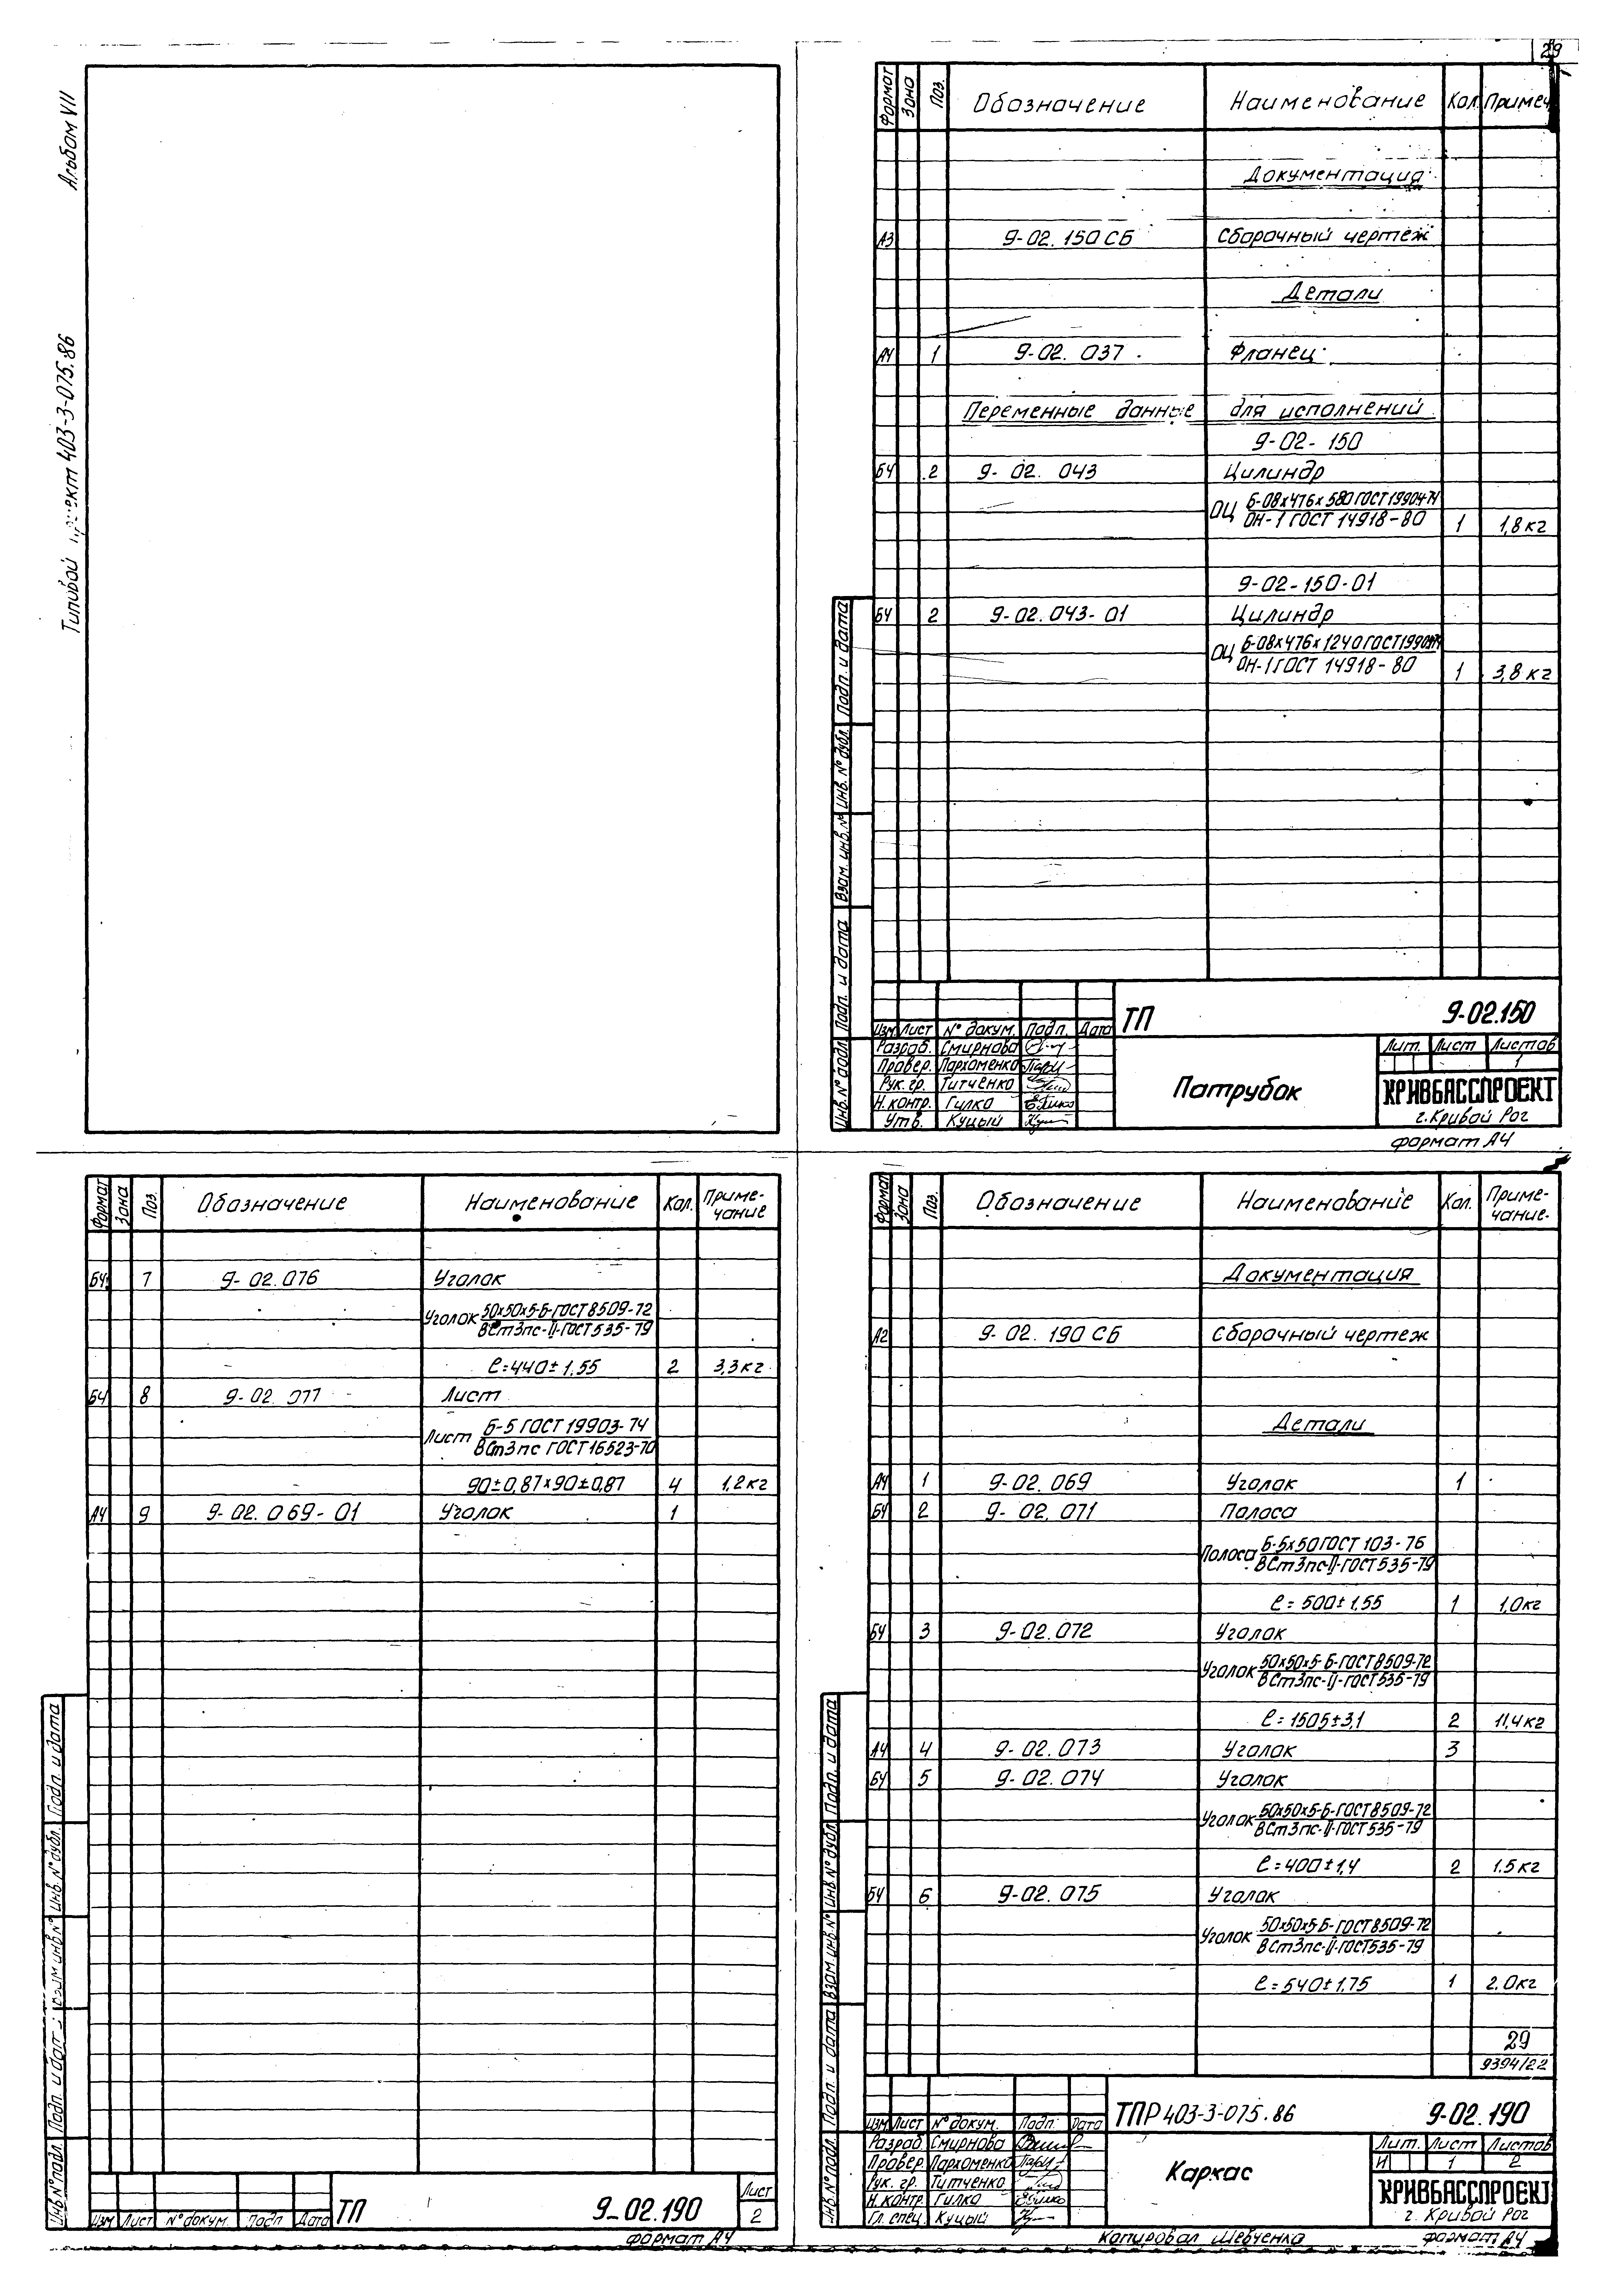 Альбом VII
Типовой проект 403-3-075.86
29
Формат Зона Поз. Обозначение Наименование Кол. Примеч
Документация
А3 9-02.150 СБ Сборочный чертеж
Детали
А4 1 9-02.037 Фланец
Переменные данные для исполнений
9-02-150
БЧ 2 9-02.043 Цилиндр
ОЦ Б-08х476х580 ГОСТ 19904-74
ОН-1 ГОСТ 14918-80 1 1,8 кг
9-02-150-01
БЧ 2 9-02.043-01 Цилиндр
ОЦ Б-08х476х1240 ГОСТ 19904-74
ОН-1 ГОСТ 14918-80 1 3,8 кг
Инв. № подл. Подп. и дата Взам. инв. № Инв. № дубл. Подп. и дата
Изм Лист № докум. Подп. Дата
Разраб. Смирнова
Провер. Пархоменко
Рук. гр. Титченко
Н. контр. Гилко
Утв. Куцый
ТП 9-02.150
Патрубок
Лит. Лист Листов
1
КРИВБАССПРОЕКТ
г. Кривой Рог
формат А4
Формат Зона Поз. Обозначение Наименование Кол. Приме-
чание
БЧ 7 9-02.076 Уголок
Уголок 50х50х5-Б-ГОСТ 8509-72
ВСт3пс-II-ГОСТ 535-79
ℓ=440±1.55 2 3,3 кг
БЧ 8 9-02.077 Лист
Лист Б-5 ГОСТ 19903-74
ВСт3пс ГОСТ 16523-70
90±0,87х90±0,87 4 1,2 кг
А4 9 9-02.069-01 Уголок 1
Инв № подл. Подп. и дата Взам инв № Инв. № дубл. Подп. и дата
Изм Лист № докум. Подп Дата
ТП 9-02.190
Лист
2
формат А4
Формат Зона Поз. Обозначение Наименование Кол. Приме-
чание
Документация
А2 9-02.190 СБ Сборочный чертеж
Детали
А4 1 9-02.069 Уголок 1
БЧ 2 9-02.071 Полоса
Полоса Б-5х50 ГОСТ 103-76
ВСт3пс-II-ГОСТ 535-79
ℓ=500±1.55 1 1,0 кг
БЧ 3 9-02.072 Уголок
Уголок 50х50х5-Б-ГОСТ 8509-72
ВСт3пс-II-ГОСТ 535-79
ℓ=1505±3,1 2 11,4 кг
А4 4 9-02.073 Уголок 3
БЧ 5 9-02.074 Уголок
Уголок 50х50х5-Б-ГОСТ 8509-72
ВСт3пс-II-ГОСТ 535-79
ℓ=400±1,4 2 1.5 кг
БЧ 6 9-02.075 Уголок
Уголок 50х50х5-Б-ГОСТ 8509-72
ВСт3пс-II-ГОСТ 535-79
ℓ=540±1.75 1 2.0 кг
29
9394/22
Инв. № подл. Подп. и дата Взам. инв. № Инв. № дубл. Подп. и дата
Изм Лист № докум. Подп. Дата
Разраб. Смирнова
Провер. Пархоменко
Рук. гр. Титченко
Н. контр. Гилко
Гл. спец. Куцый
ТПР 403-3-075.86 9-02.190
Каркас
Лит. Лист Листов
И 1 2
КРИВБАССПРОЕКТ
г. Кривой Рог
Копировал Шевченко формат А4